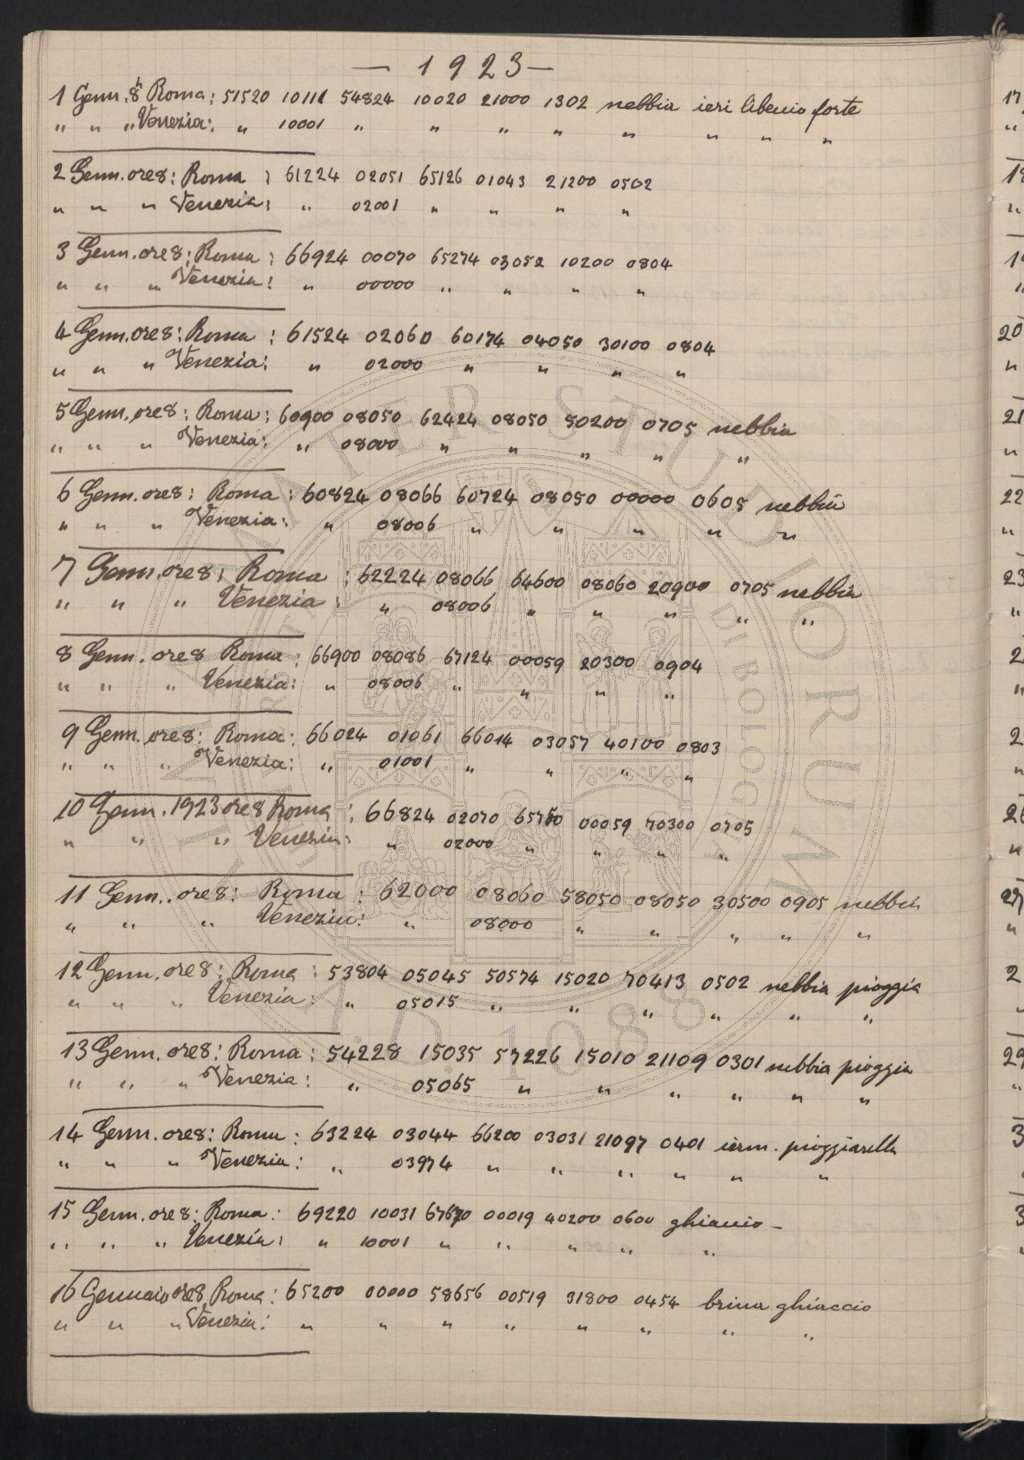 — 1923 —
1 Genn. 8 Roma: 51520 10111 54824 10020 21000 1302 nebbia ieri libeccio forte
" " " Venezia: " 10001 " " " " " " " "
2 Genn. ore 8: Roma : 61224 02051 65126 01043 21200 0502
" " " Venezia: " 02001 " " " "
3 Genn. ore 8: Roma : 66924 00070 65274 03052 10200 0804
" " " Venezia: " 00000 " " " "
4 Genn. ore 8: Roma : 61524 02060 60174 04050 30100 0804
" " " Venezia: " 02000 " " " "
5 Genn. ore 8: Roma: 60900 08050 62424 08050 80200 0705 nebbia
" " " Venezia: " 08000 " " " " "
6 Genn. ore 8: Roma : 60824 08066 60724 08050 00000 0605 nebbia
" " " Venezia: " 08006 " " " " "
7 Genn. ore 8: Roma : 62224 08066 64600 08060 20900 0705 nebbia
" " " Venezia : " 08006 " " " " "
8 Genn. ore 8 Roma : 66900 08086 67124 00059 20300 0904
" " " Venezia: " 08006 " " " "
9 Genn. ore 8: Roma: 66024 01061 66014 03057 40100 0803
" " " Venezia: " 01001 " " " "
10 Genn. 1923 ore 8 Roma : 66824 02070 00059 70300 0705
" " " Venezia: " 02000 " " " "
11 Genn.. ore 8: Roma : 62000 08060 58050 08050 30500 0905 nebbia
" " " Venezia: " 08000 " " " " "
12 Genn. ore 8: Roma : 53804 05045 50574 15020 70413 0502 nebbia pioggia
" " " Venezia : " 05015 " " " " " "
13 Genn. ore 8: Roma : 54228 15035 57226 15010 21109 0301 nebbia pioggia
" " " Venezia : " 05065 " " " " " "
14 Genn. ore 8: Roma : 63224 03044 66200 03031 21097 0401 pioggiarella
" " " Venezia : " 03974 " " " " " "
15 Genn. ore 8: Roma : 69220 10031 00019 40200 0600 ghiaccio -
" " " Venezia: " 10001 " " " " "
16 Gennaio ore 8 Roma: 65200 00000 58656 00519 31800 0454 brina ghiaccio
" " " Venezia: " " " " " " " "
ALMA MATER STUDIORUM
UNIVERSITÀ DI BOLOGNA
A.D. 1088